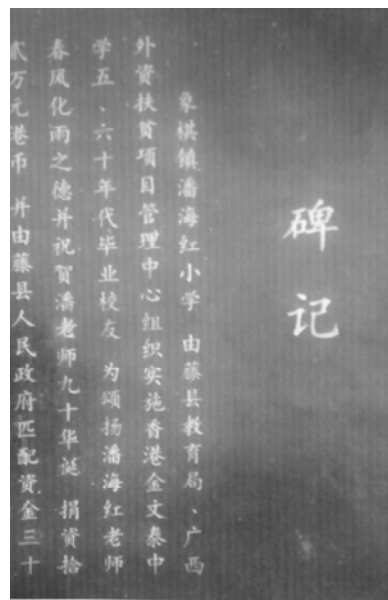 碑记
象棋镇潘海红小学 由藤县教育局、广西
外资扶贫项目管理中心组织实施香港金文泰中
学五、六十年代毕业校友 为颂扬潘海红老师
春风化雨之德并祝贺潘老师九十华诞 捐资拾
贰万元港币 并由藤县人民政府匹配资金三十